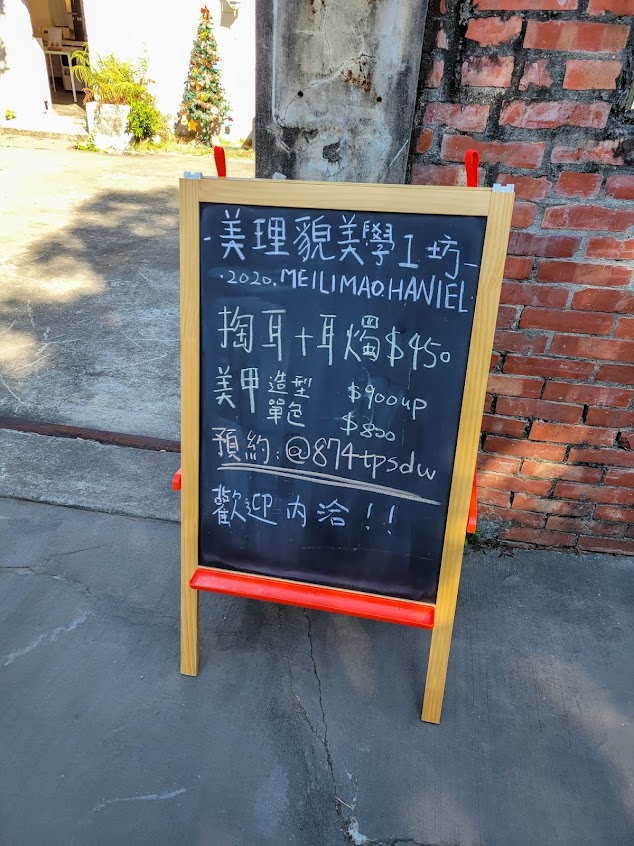 -美理貌美學工坊-
·2020.MEILIMAO.HANIEL.
掏耳+耳燭$450
美甲 造型 $900up
單色 $800
預約:@874tpsdw
歡迎內洽!!